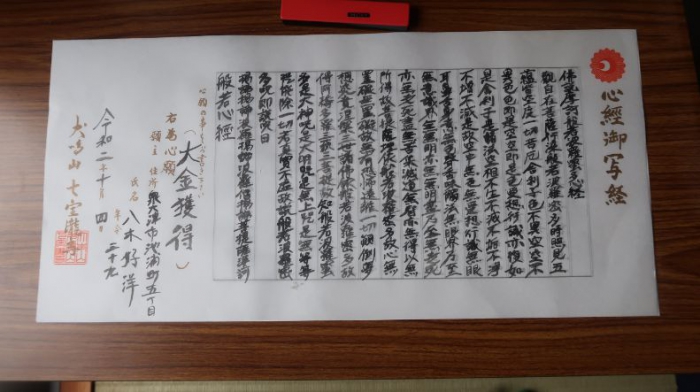 心經御写経
佛説摩訶般若波羅蜜多心経
観自在菩薩行深般若波羅蜜多時照見五
蘊皆空度一切苦厄舎利子色不異空空不
異色色即是空空即是色受想行識亦復如
是舎利子是諸法空相不生不滅不垢不浄
不増不減是故空中無色無受想行識無眼
耳鼻舌身意無色声香味触法無眼界乃至
無意識界無無明亦無無明尽乃至無老死
亦無老死尽無苦集滅道無智亦無得以無
所得故菩提薩埵依般若波羅蜜多故心無
罣礙無罣礙故無有恐怖遠離一切顛倒夢
想究竟涅槃三世諸佛依般若波羅蜜多故
得阿耨多羅三藐三菩提故知般若波羅蜜
多是大神呪是大明呪是無上呪是無等等
呪能除一切苦真實不虚故説般若波羅蜜
多呪即説呪曰
羯諦羯諦波羅羯諦波羅僧羯諦菩提薩婆訶
般若心經
（大金獲得）
右為心願
願主 住所 泉大津市池浦町五丁目
氏名 八木野洋
年令 三十九
令和二年十月四日
犬鳴山七宝瀧寺